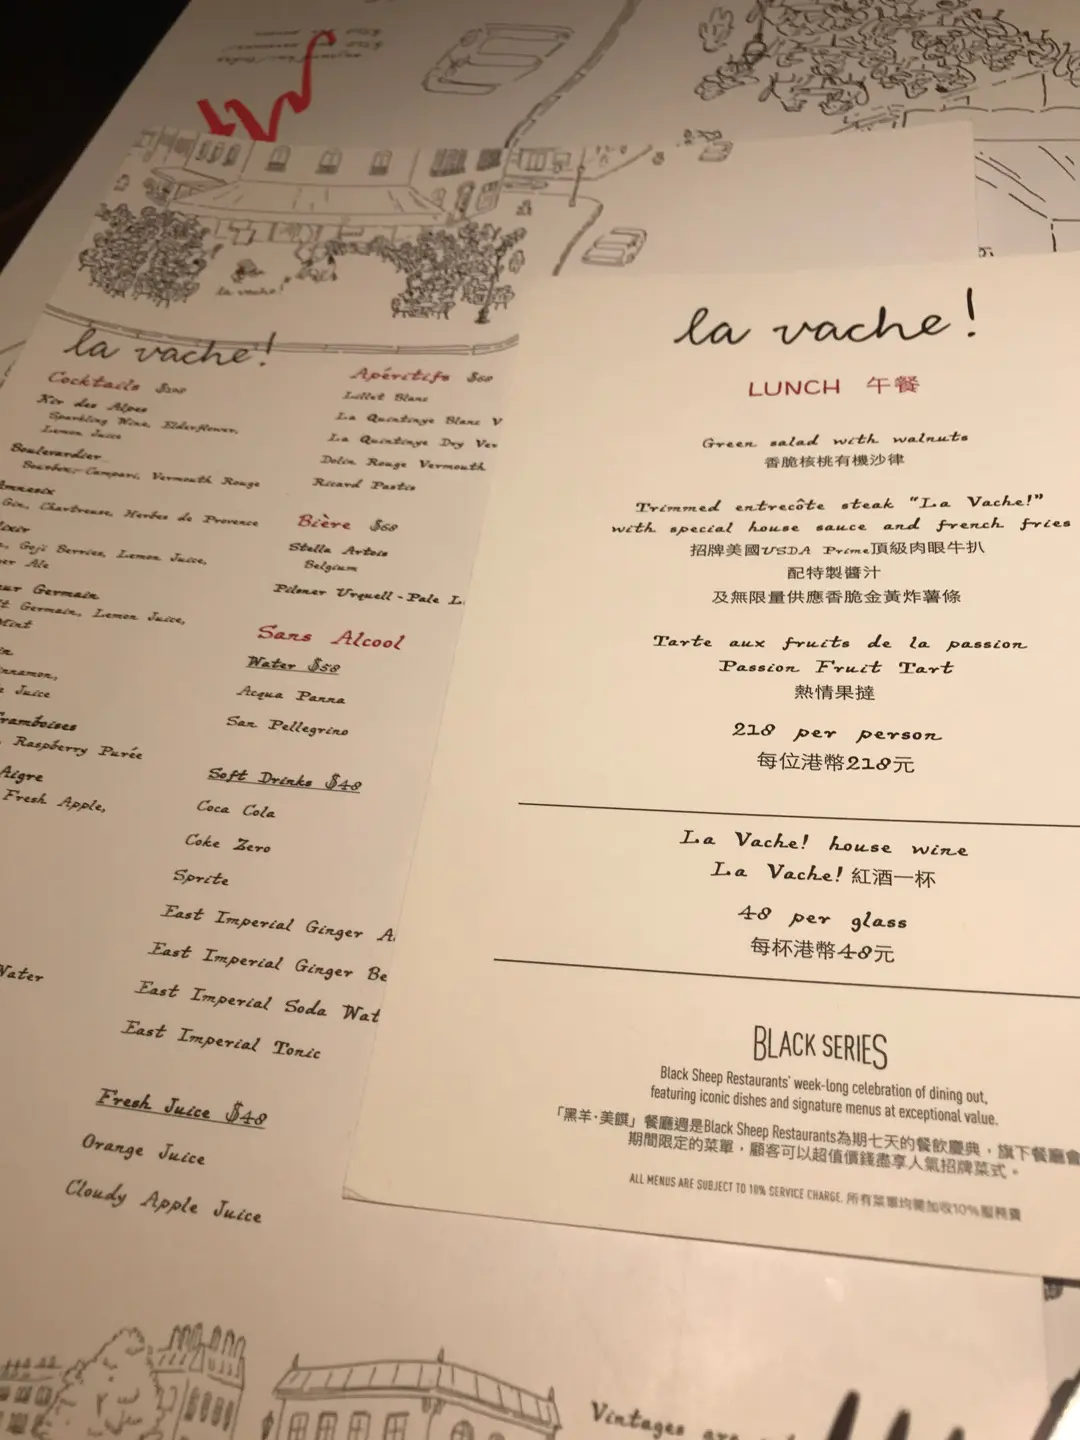 la vache!
la vache!
Cocktails
Kir des Alpes
Sparkling Wine, Elderflower,
Lemon Juice
Boulevardier
Bourbon, Campari, Vermouth Rouge
Amnesix
Gin, Chartreuse, Herbes de Provence
Goji Berries, Lemon Juice,
Ale
Germain
Germain, Lemon Juice,
Mint
Juice
Framboises
Raspberry Purée
Aigre
Fresh Apple,
Water
Apéritifs $68
Lillet Blanc
La Quintinye Blanc V
La Quintinye Dry Ver
Dolin Rouge Vermouth
Ricard Pastis
Bière $68
Stella Artois
Belgium
Pilsner Urquell - Pale L
Sans Alcool
Water $58
Acqua Panna
San Pellegrino
Soft Drinks $48
Coca Cola
Coke Zero
Sprite
East Imperial Ginger A
East Imperial Ginger Be
East Imperial Soda Wat
East Imperial Tonic
Fresh Juice $48
Orange Juice
Cloudy Apple Juice
la vache!
LUNCH 午餐
Green salad with walnuts
香脆核桃有機沙律
Trimmed entrecôte steak "La Vache!"
with special house sauce and french fries
招牌美國USDA Prime頂級肉眼牛扒
配特製醬汁
及無限量供應香脆金黃炸薯條
Tarte aux fruits de la passion
Passion Fruit Tart
熱情果撻
218 per person
每位港幣218元
La Vache! house wine
La Vache! 紅酒一杯
48 per glass
每杯港幣48元
BLACK SERIES
Black Sheep Restaurants' week-long celebration of dining out,
featuring iconic dishes and signature menus at exceptional value.
「黑羊·美饌」餐廳週是Black Sheep Restaurants為期七天的餐飲慶典，旗下餐廳會
期間限定的菜單，顧客可以超值價錢盡享人氣招牌菜式。
ALL MENUS ARE SUBJECT TO 10% SERVICE CHARGE. 所有菜單均需加收10%服務費
Vintages are